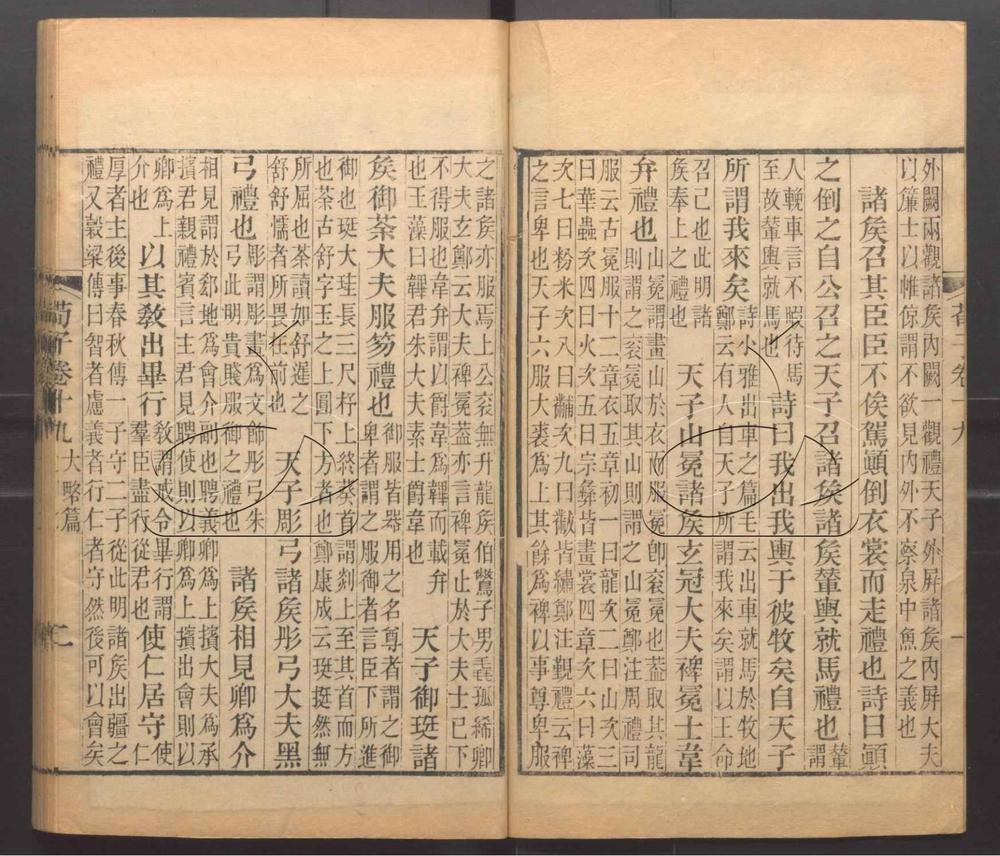 外闕兩觀諸矦內闕一觀禮天子外屏諸矦內屏大夫
以簾士以帷倞謂不欲見內外不察泉中魚之義也
諸矦召其臣臣不俟駕顚倒衣裳而走禮也詩曰顚
之倒之自公召之天子召諸矦諸矦輦輿就馬禮也
輦
謂
人輓車言不暇待馬
至故輦輿就馬也
詩曰我出我輿于彼牧矣自天子
所謂我來矣
詩小雅出車之篇毛云出車就馬於牧地
鄭云有人自天子所謂我來矣謂以王命
召己也此明諸
矦奉上之禮也
天子山冕諸矦玄冠大夫裨冕士韋
弁禮也
山冕謂畫山於衣而服冕卽衮冕也蓋取其龍
則謂之衮冕取其山則謂之山冕鄭注周禮司
服云古冕服十二章衣五章初一曰龍次二曰山次三
曰華蟲次四曰火次五曰宗彝皆畫裳四章次六曰藻
次七曰粉米次八曰黼次九曰黻皆繡鄭注覲禮云裨
之言卑也天子六服大裘爲上其餘爲裨以事尊卑服
之諸矦亦服焉上公衮無升龍矦伯鷩子男毳孤絺卿
大夫玄鄭云大夫裨冕蓋亦言裨冕止於大夫士已下
不得服也韋弁謂以爵韋爲韠而載弁
也玉藻曰韠君朱大夫素士爵韋也
天子御珽諸
矦御荼大夫服笏禮也
御服皆器用之名尊者謂之御
卑者謂之服御者言臣下所進
御也珽大珪長三尺杼上終葵首謂剡上至其首而方
也荼古舒字玉之上圓下方者也鄭康成云珽挺然無
所屈也荼讀如舒遲之
舒舒懦者所畏在前也
天子彫弓諸矦彤弓大夫黑
弓禮也
彫謂彫畫爲文飾彤弓朱
弓此明貴賤服御之禮也
諸矦相見卿爲介
相見謂於郄地爲會介副也聘義卿爲上擯大夫爲承
擯君親禮賓言主君見聘使則以卿爲上擯出會則以
卿爲上
介也
以其敎出畢行
敎謂戒令畢行謂
羣臣盡行從君也
使仁居守
使
仁
厚者主後事春秋傳一子守二子從此明諸矦出疆之
禮又穀梁傳曰智者慮義者行仁者守然後可以會矣
荀子卷十九
大略篇
二
荀子卷十九
一